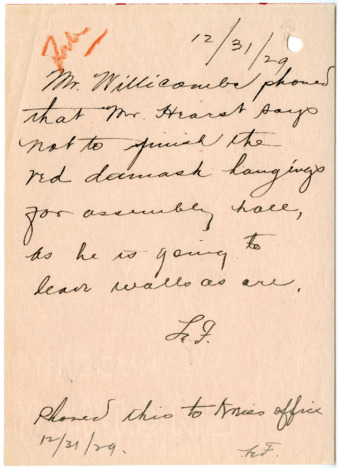 12/31/29
Mr. Willicombe phoned
that Mr. Hearst says
not to finish the
red damask hangings
for assembly hall,
as he is going to
leave walls as are.
L.F.
Phoned this to Kniess office
12/31/29.
LF